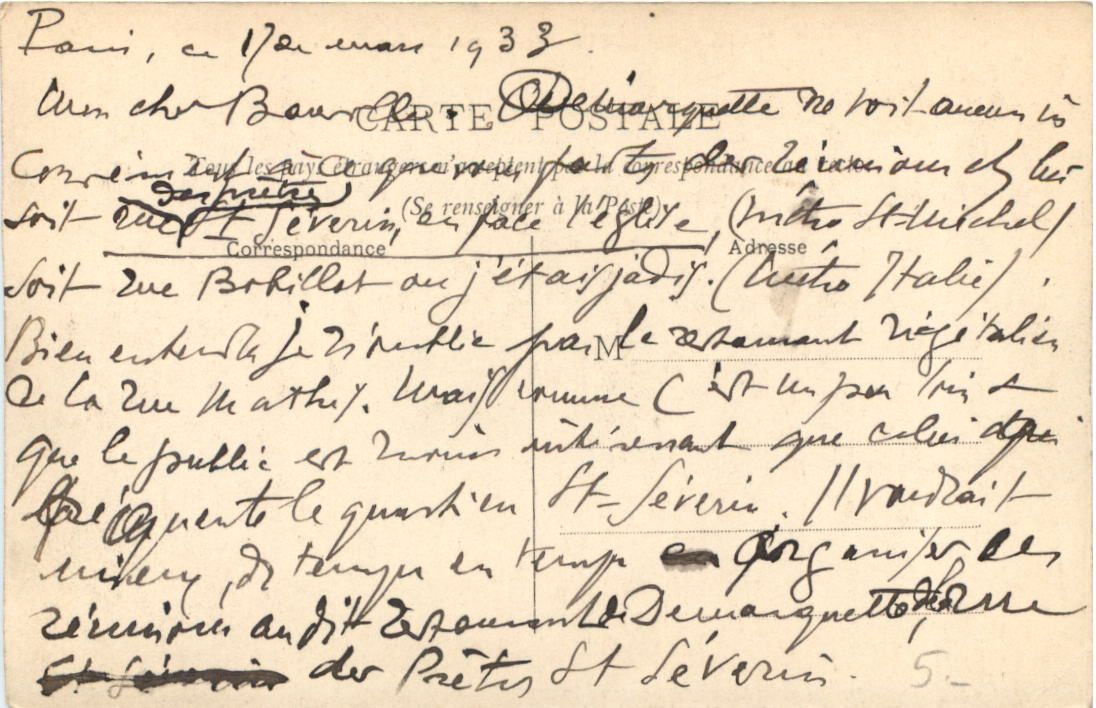 Paris, ce 17 de mars 1933.
Mon cher Bourelle. Demarquette ne voit aucun in
CARTE POSTALE
convénient à ce que vous fassiez des réunions chez lui
Tous les pays étrangers n'acceptent pas la correspondance au recto
des prêtres
soit rue St Séverin, en face l'église, (métro St-Michel)
(Se renseigner à la Poste)
Correspondance
Adresse
soit rue Bobillot où j'étais jadis. (métro Italie).
Bien entendu je n'oublie pas le restaurant végétalien
M
de la rue Mathis. Mais comme c'est un peu loin et
que le public est moins intéressant que celui qui
fréquente le quartier St-Séverin. Il vaudrait
mieux, de temps en temps organiser des
réunions au dit restaurant de Demarquette, de la rue
St Séverin des Prêtres St Séverin.
5-